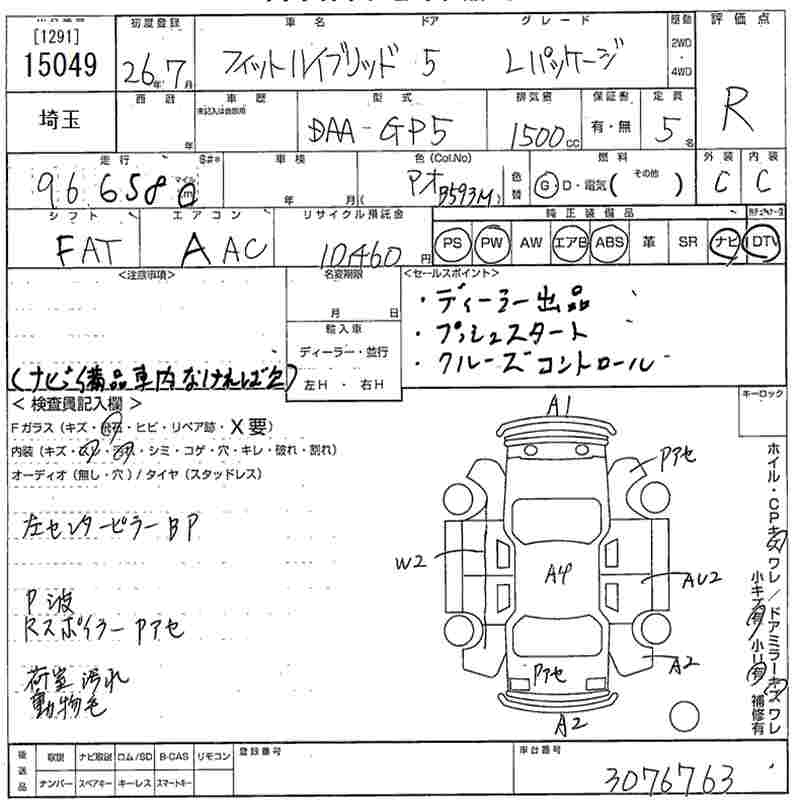 [1291]
15049
初度登録
26年7月
車名
フィットハイブリッド
ドア
5
グレード
Lパッケージ
駆動
2WD
・
4WD
評価点
R
埼玉
西暦
年
車歴
未記入は自家用
型式
DAA-GP5
排気量
1500cc
保証書
有・無
定員
5名
走行
96658
マイル
km
車検
年 月
色(Col.No)
アオ
(B593M)
色替
燃料
G・D・電気( その他 )
外装
C
内装
C
シフト
FAT
エアコン
AAC
リサイクル預託金
10460円
純正装備品
PS PW AW エアB ABS 革 SR ナビ DTV
<注意事項>
(ナビ備品車内なければ欠)
名変期限
月 日
輸入車
ディーラー・並行
左H・右H
<セールスポイント>
・ディーラー出品
・プッシュスタート
・クルーズコントロール
<検査員記入欄>
Fガラス(キズ・飛石・ヒビ・リペア跡・X要)
内装(キズ・コゲ・穴・キレ・破れ・割れ)
オーディオ(無し・穴)/タイヤ(スタッドレス)
左センターピラーBP
P波
RスポイラーPアセ
荷室汚れ
動物毛
キーロック
A1
Pアセ
W2
A4
AU2
A2
Pアセ
A2
ホイル・CPキズワレ/ドアミラーキズワレ
小キズ有 小凹有 補修有
後送品
取説 ナビ取説 ロム/SD B-CAS リモコン
ナンバー スペアキー キーレス スマートキー
登録番号
車台番号
3076763